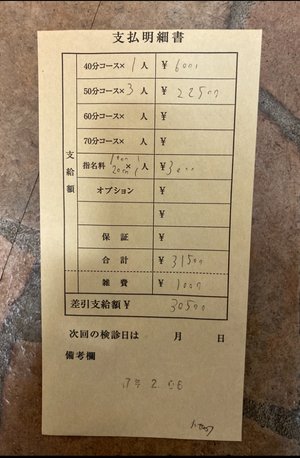 支払明細書
40分コース× 1 人 ¥ 6000
50分コース× 3 人 ¥ 22500
60分コース× 人 ¥
70分コース× 人 ¥
支給額
指名料 1000 2000 × 1 1 人 ¥ 3000
オプション ¥
¥
¥
保証 ¥
合計 ¥ 31500
雑費 ¥ 1000
差引支給額¥ 30500
次回の検診日は 月 日
備考欄